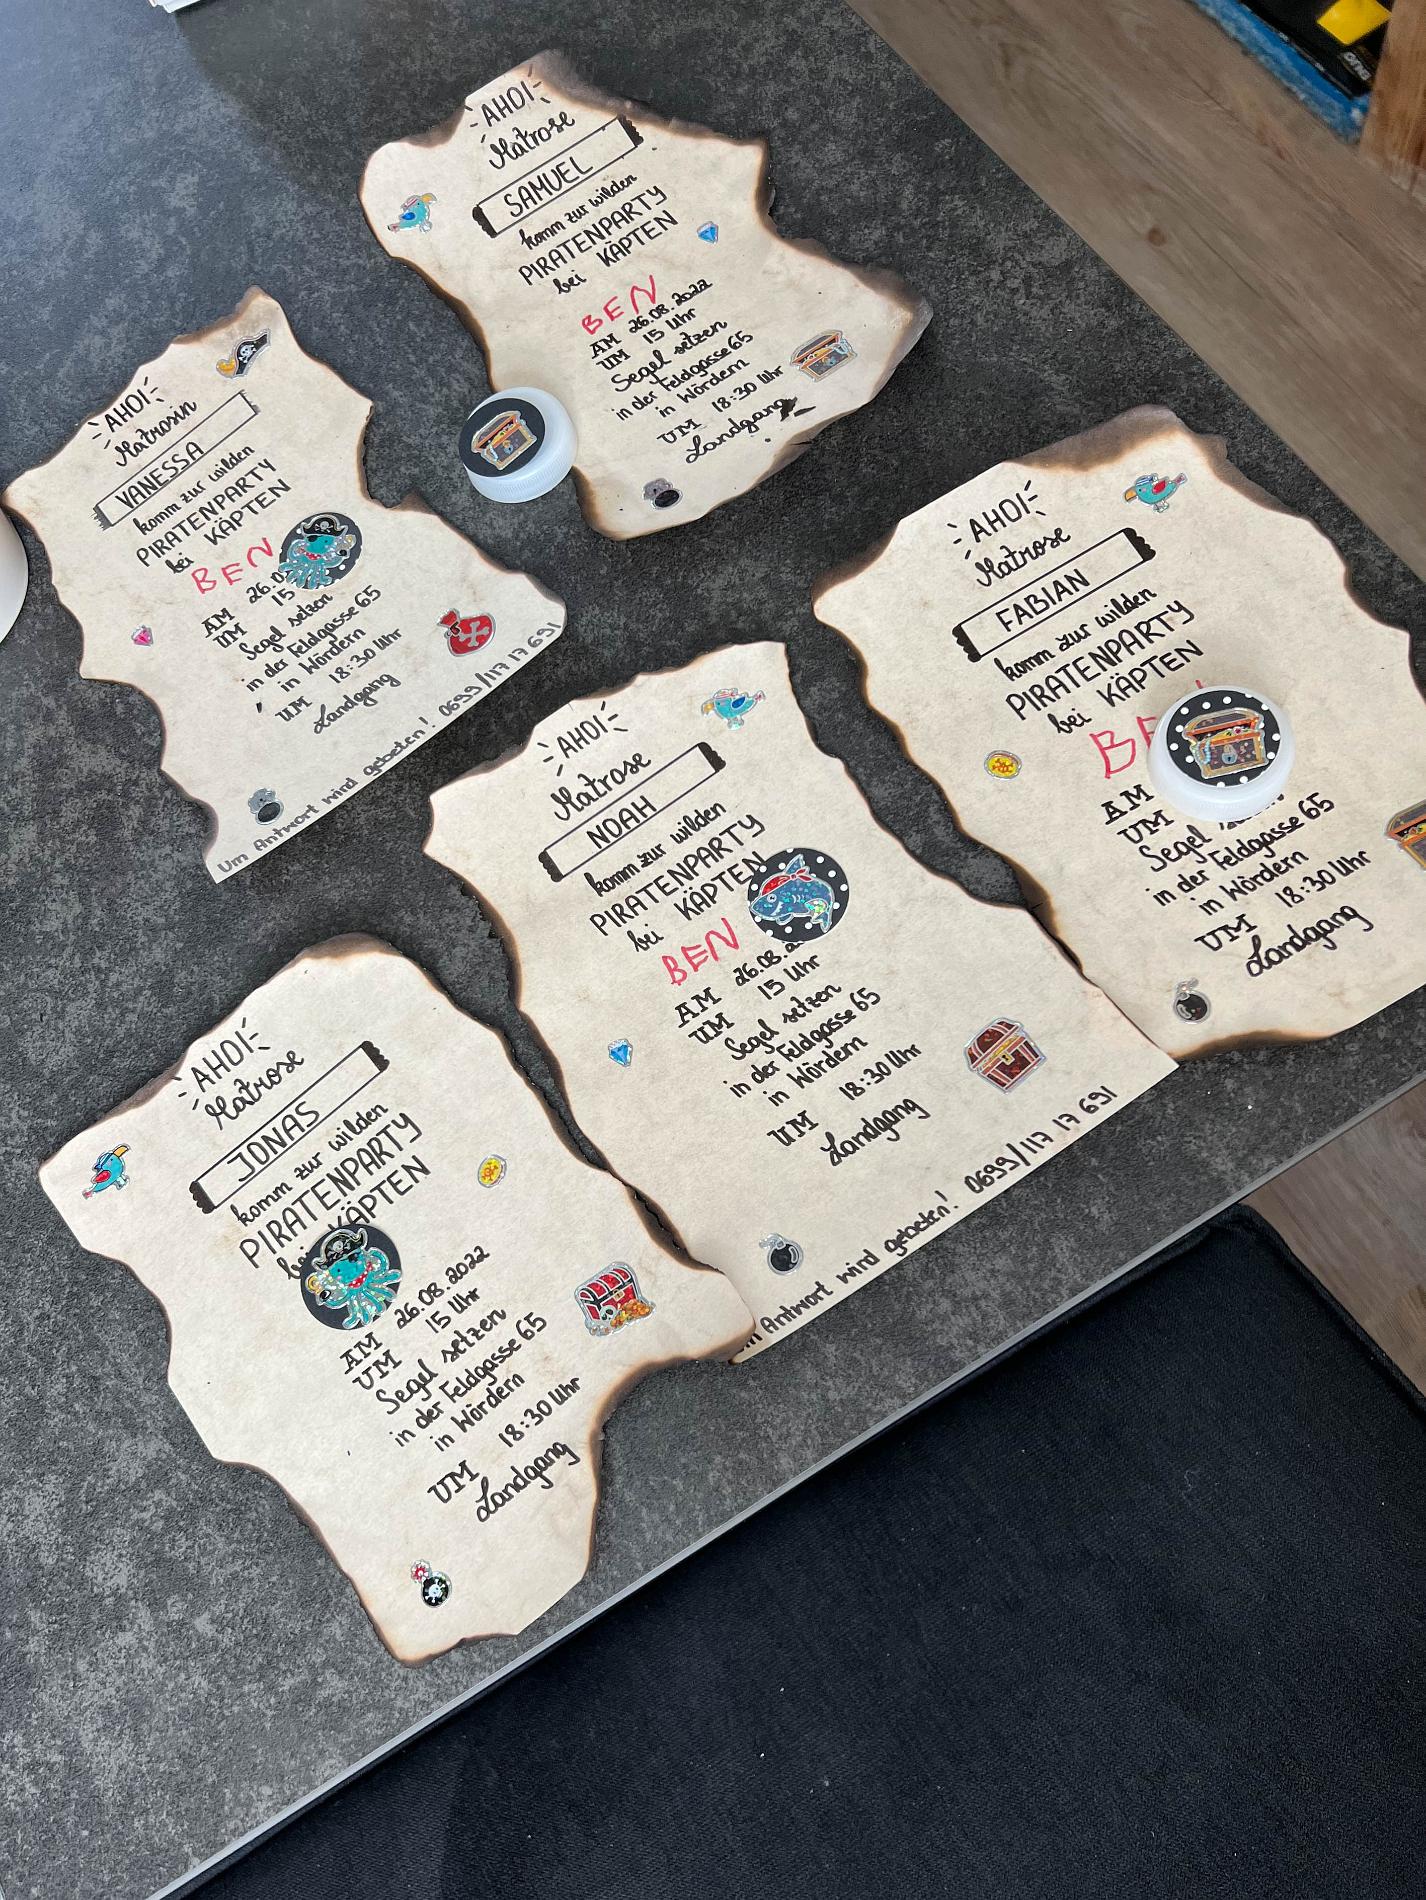 AHOI
Matrose
SAMUEL
komm zur wilden
PIRATENPARTY
bei KÄPTEN
BEN
AM 26.08.2022
UM 15 Uhr
Segel setzen
in der Feldgasse 65
in Wördern
UM 18:30 Uhr
Landgang
AHOI
Matrosin
VANESSA
komm zur wilden
PIRATENPARTY
bei KÄPTEN
BEN
AM 26.0
UM 15
Segel setzen
in der Feldgasse 65
in Wördern
UM 18:30 Uhr
Landgang
Um Antwort wird gebeten! 0699/117 17 691
AHOI
Matrose
FABIAN
komm zur wilden
PIRATENPARTY
bei KÄPTEN
BE
AM
UM
Segel
in der Feldgasse 65
in Wördern
UM 18:30 Uhr
Landgang
AHOI
Matrose
NOAH
komm zur wilden
PIRATENPARTY
bei KÄPTEN
BEN
AM 26.08.
UM 15 Uhr
Segel setzen
in der Feldgasse 65
in Wördern
UM 18:30 Uhr
Landgang
Antwort wird gebeten! 0699/117 17 691
AHOI
Matrose
JONAS
komm zur wilden
PIRATENPARTY
bei KÄPTEN
AM 26.08.2022
UM 15 Uhr
Segel setzen
in der Feldgasse 65
in Wördern
UM 18:30 Uhr
Landgang